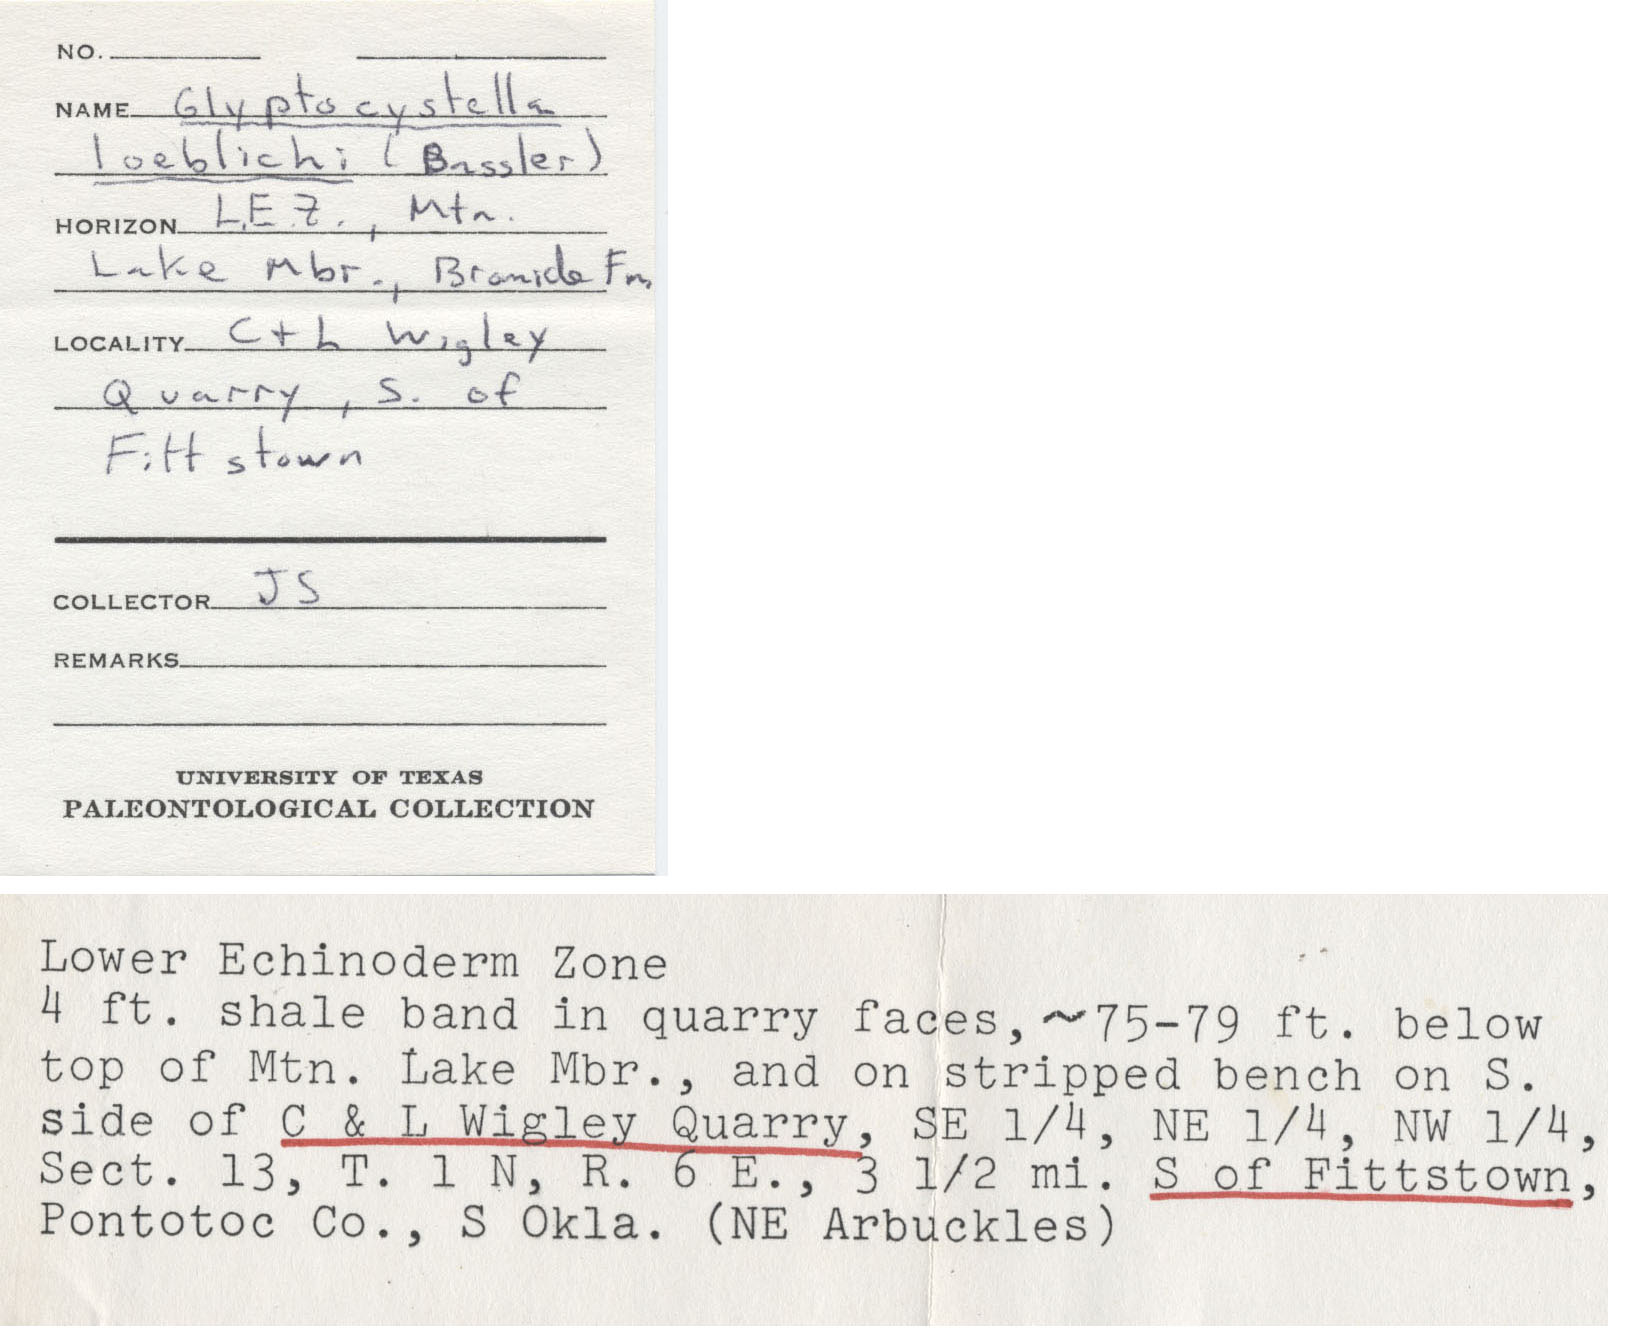 NO.
NAME Glyptocystella
loeblichi (Bassler)
HORIZON L.E.Z., Mtn.
Lake Mbr., Bromide Fm.
LOCALITY C + L Wigley
Quarry, S. of
Fittstown
COLLECTOR JS
REMARKS
UNIVERSITY OF TEXAS
PALEONTOLOGICAL COLLECTION
Lower Echinoderm Zone
4 ft. shale band in quarry faces, ~75-79 ft. below
top of Mtn. Lake Mbr., and on stripped bench on S.
side of C & L Wigley Quarry, SE 1/4, NE 1/4, NW 1/4,
Sect. 13, T. 1 N, R. 6 E., 3 1/2 mi. S of Fittstown,
Pontotoc Co., S Okla. (NE Arbuckles)